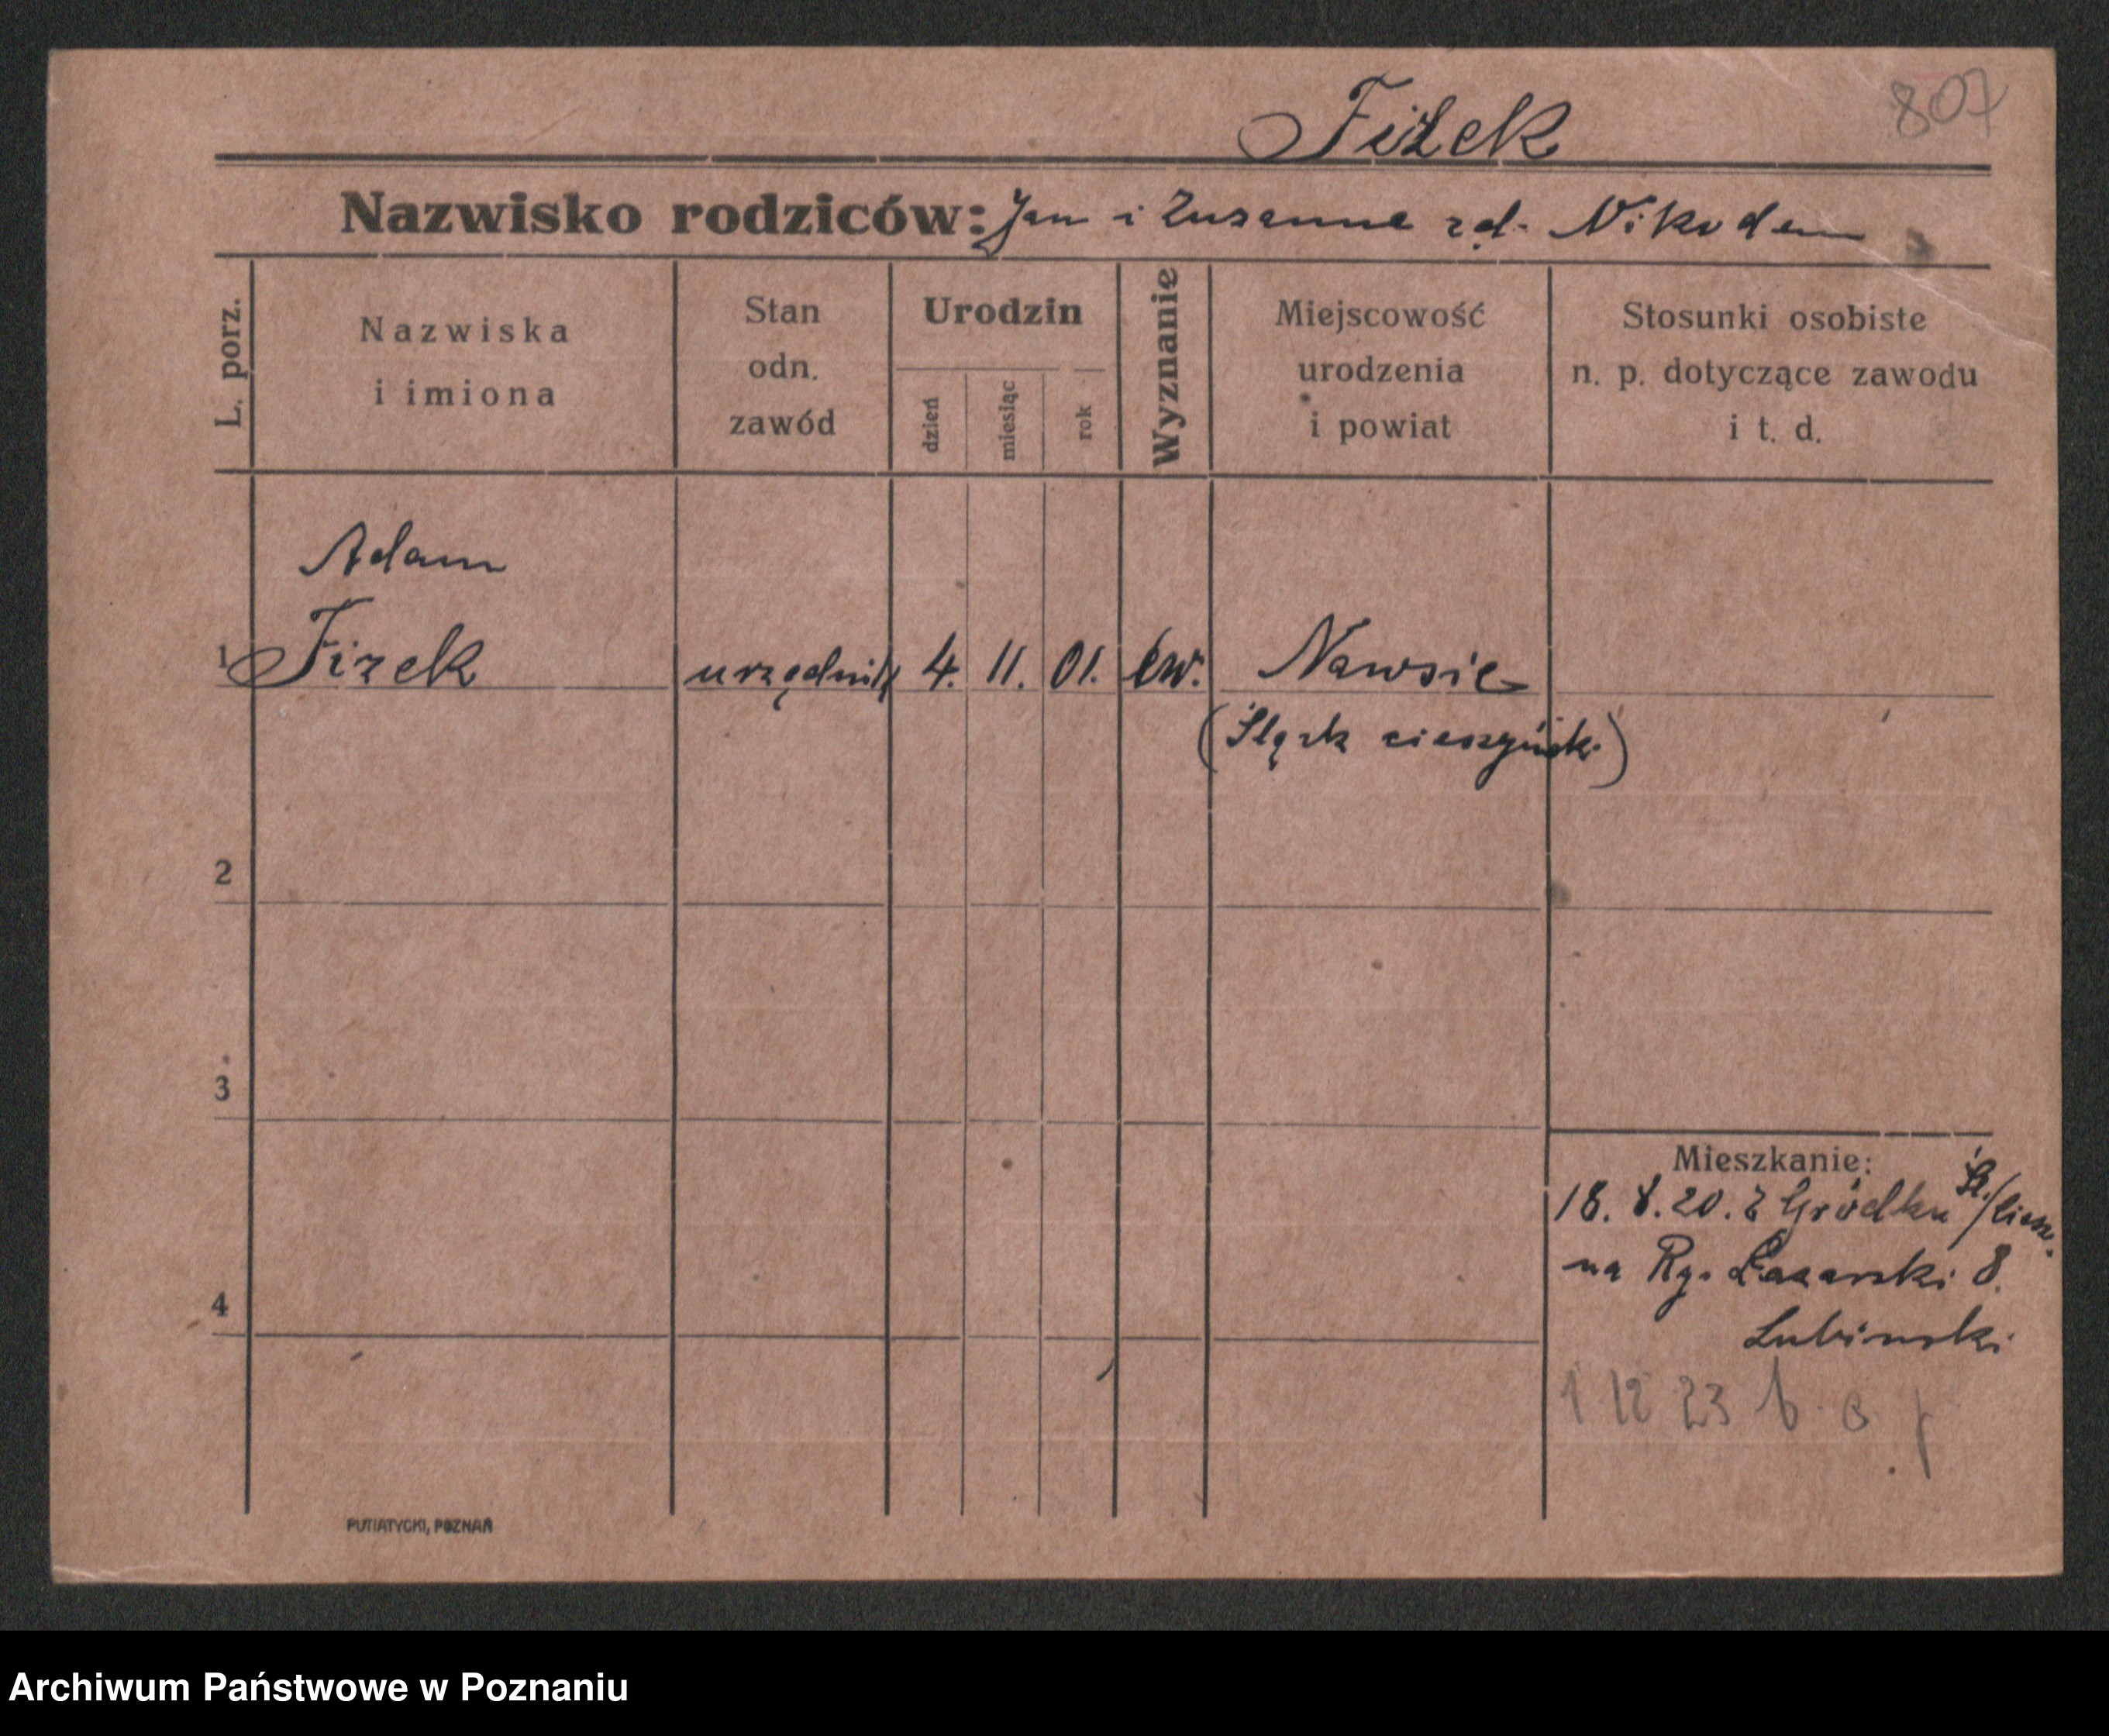 807
Fiżek
Nazwisko rodziców: Jan i Zusanna zd. Nikodem
L. porz.
Nazwiska
i imiona
Stan
odn.
zawód
Urodzin
dzień
miesiąc
rok
Wyznanie
Miejscowość
urodzenia
i powiat
Stosunki osobiste
n. p. dotyczące zawodu
i t. d.
Adam
1 Fizek urzędnik 4. 11. 01. ew. Nawsie
(Śląsk cieszyńsk.)
2
3
4
Mieszkanie:
18. 8. 20. z Gródku Śl./Ciesz.
na Ry. Łazarski 8.
Lubinski
1 12 23 b
PUTIATYCKI, POZNAŃ
Archiwum Państwowe w Poznaniu